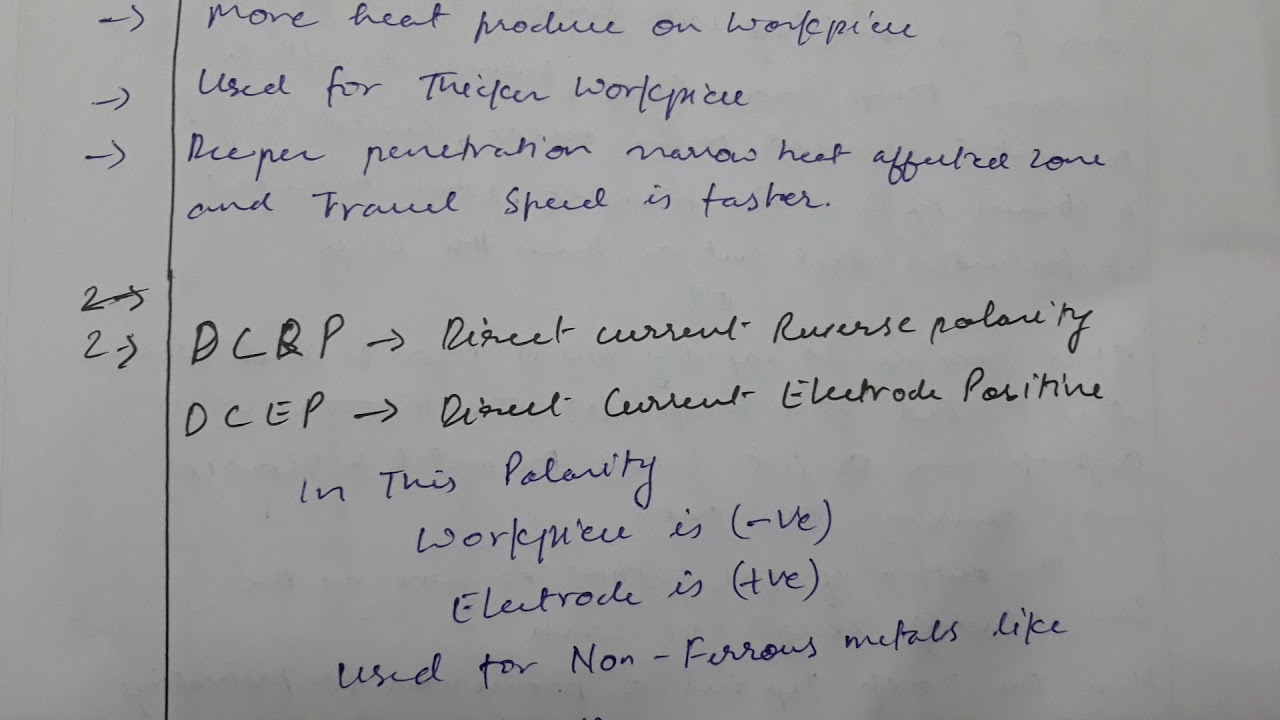 → More heat produce on workpiece
→ Used for Thicker workpiece
→ Deeper penetration narrow heat affected zone
and Travel Speed is faster.
2→
2→ DCRP → Direct current Reverse polarity
DCEP → Direct Current Electrode Positive
In This Polarity
Workpiece is (-ve)
Electrode is (+ve)
Used for Non-Ferrous metals like